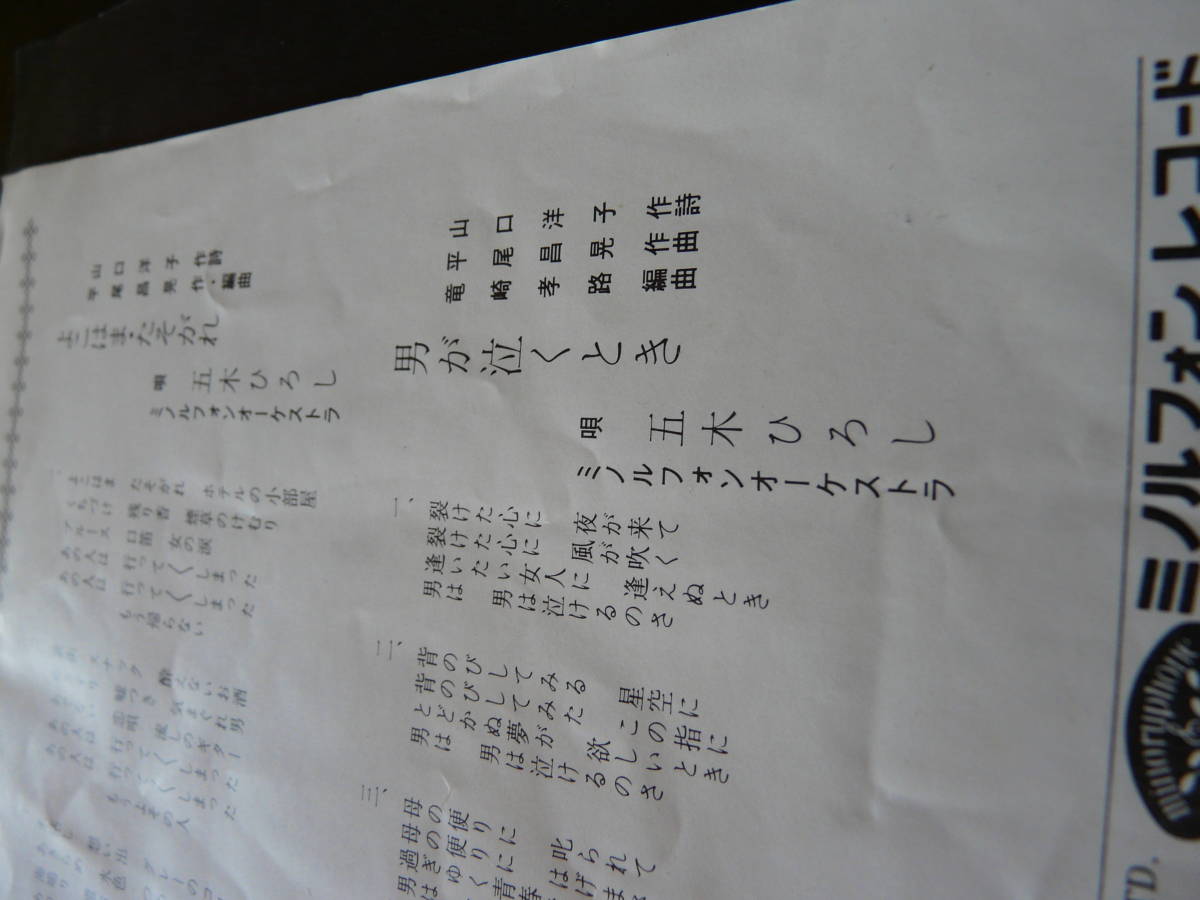 山口洋子 作詩
平尾昌晃 作・編曲
よこはま・たそがれ
唄 五木ひろし
ミノルフォンオーケストラ
一、
よこはま たそがれ ホテルの小部屋
くちづけ 残り香 煙草のけむり
ブルース 口笛 女の涙
あの人は 行って〱しまった
あの人は 行って〱しまった
もう帰らない
スナック 酔えないお酒
嘘つき 気まぐれ男
恋唄 流しのギター
あの人は 行って〱しまった
あの人は 行って〱しまった
もうよその人
山口洋子 作詩
平尾昌晃 作曲
竜崎孝路 編曲
男が泣くとき
唄 五木ひろし
ミノルフォンオーケストラ
一、
裂けた心に 夜が来て
裂けた心に 風が吹く
逢いたい女人に 逢えぬとき
男は 男は泣けるのさ
二、
背のびしてみる 星空に
背のびしてみた この指に
とどかぬ夢が 欲しいとき
男は 男は泣けるのさ
三、
母の便りに 叱られて
母の便りに はげま
過ぎゆく青春
男は
ミノルフォンレコード
minoruphone
TD.